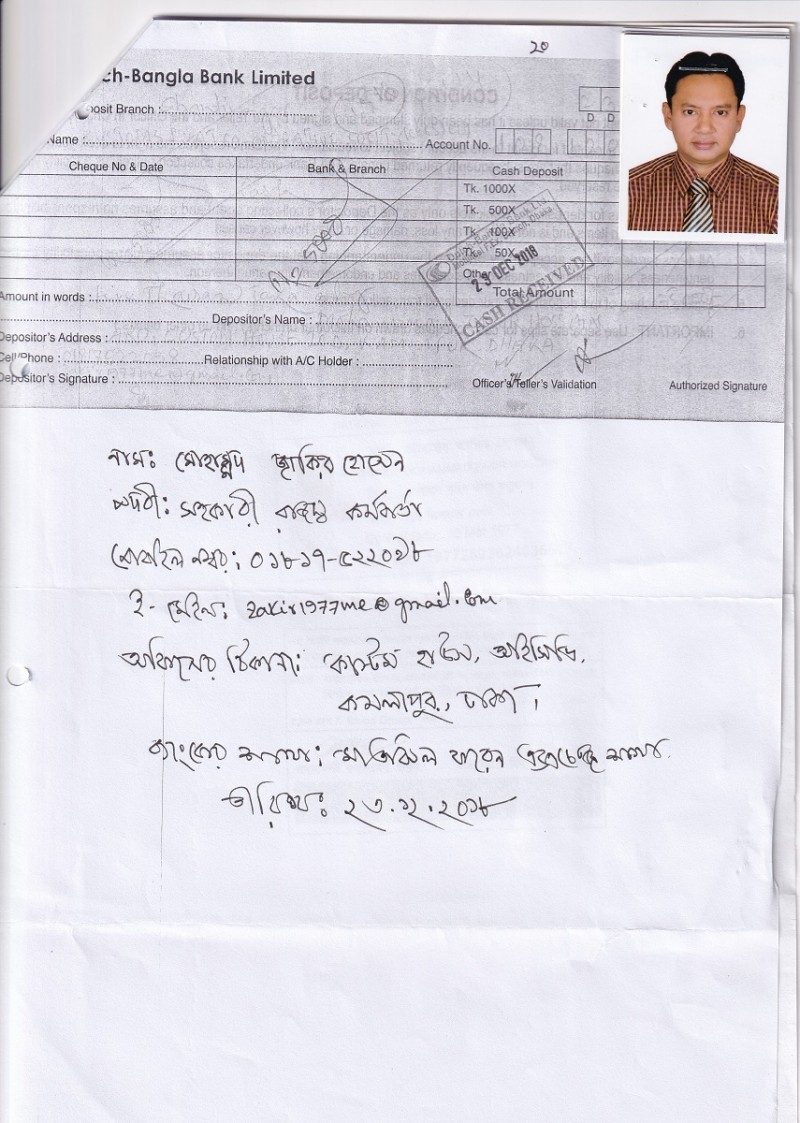 ২০
ch-Bangla Bank Limited
posit Branch :
D D
Name : Account No.
Cheque No & Date Bank & Branch Cash Deposit
Tk. 1000X
Tk. 500X
Tk. 100X
Tk. 50X
Other
Total Amount
23 DEC 2018
CASH RECEIVED
Amount in words :
Depositor's Name :
Depositor's Address :
Cell/Phone : Relationship with A/C Holder :
Depositor's Signature : Officer's/Teller's Validation Authorized Signature
নাম: মোহাম্মদ জাকির হোসেন
পদবী: সহকারী রাজস্ব কর্মকর্তা
মোবাইল নম্বর: ০১৮১৭-৫২২০১৮
ই-মেইল: zakir1977me@gmail.com
অফিসের ঠিকানা: কাস্টম হাউস, আইসিডি,
কমলাপুর, ঢাকা।
ব্যাংকের শাখা: মতিঝিল ফরেন এক্সচেঞ্জ শাখা
তারিখ: ২৩.১২.২০১৮